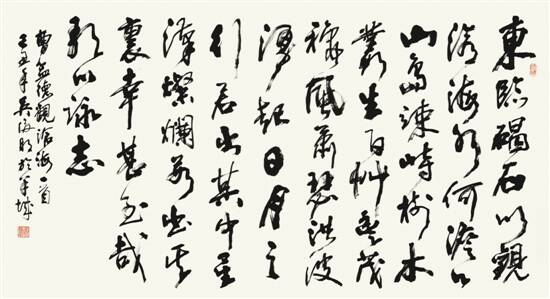 東臨碣石以觀
滄海水何澹々
山島竦峙樹木
叢生百艸豐茂
秋風蕭瑟洪波
湧起日月之
行若出其中星
漢燦爛若出其
裏幸甚至哉
歌以詠志
曹孟德觀滄海一首
丑年吳海明於羊城